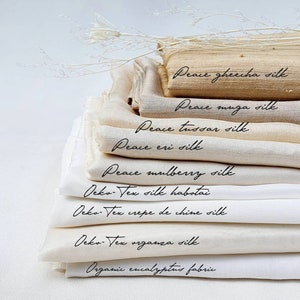 Peace gheecha silk
Peace muga silk
Peace tussar silk
Peace eri silk
Peace mulberry silk
Oeko-Tex silk habotai
Oeko-Tex crepe de chine silk
Oeko-Tex organza silk
Organic eucalyptus fabric